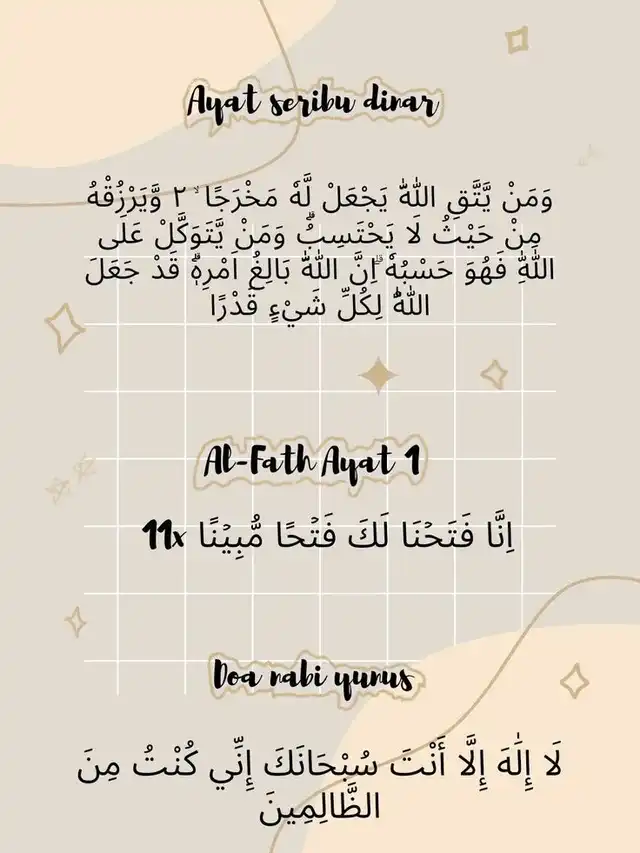 Ayat seribu dinar
وَمَنْ يَّتَّقِ اللّٰهَ يَجْعَلْ لَّهٗ مَخْرَجًا ۙ ٢ وَّيَرْزُقْهُ
مِنْ حَيْثُ لَا يَحْتَسِبُۗ وَمَنْ يَّتَوَكَّلْ عَلَى
اللّٰهِ فَهُوَ حَسْبُهٗ ۗاِنَّ اللّٰهَ بَالِغُ اَمْرِهٖۗ قَدْ جَعَلَ
اللّٰهُ لِكُلِّ شَيْءٍ قَدْرًا
Al-Fath Ayat 1
اِنَّا فَتَحْنَا لَكَ فَتْحًا مُّبِيْنًا 11x
Doa nabi yunus
لَا إِلَٰهَ إِلَّا أَنْتَ سُبْحَانَكَ إِنِّي كُنْتُ مِنَ
الظَّالِمِينَ